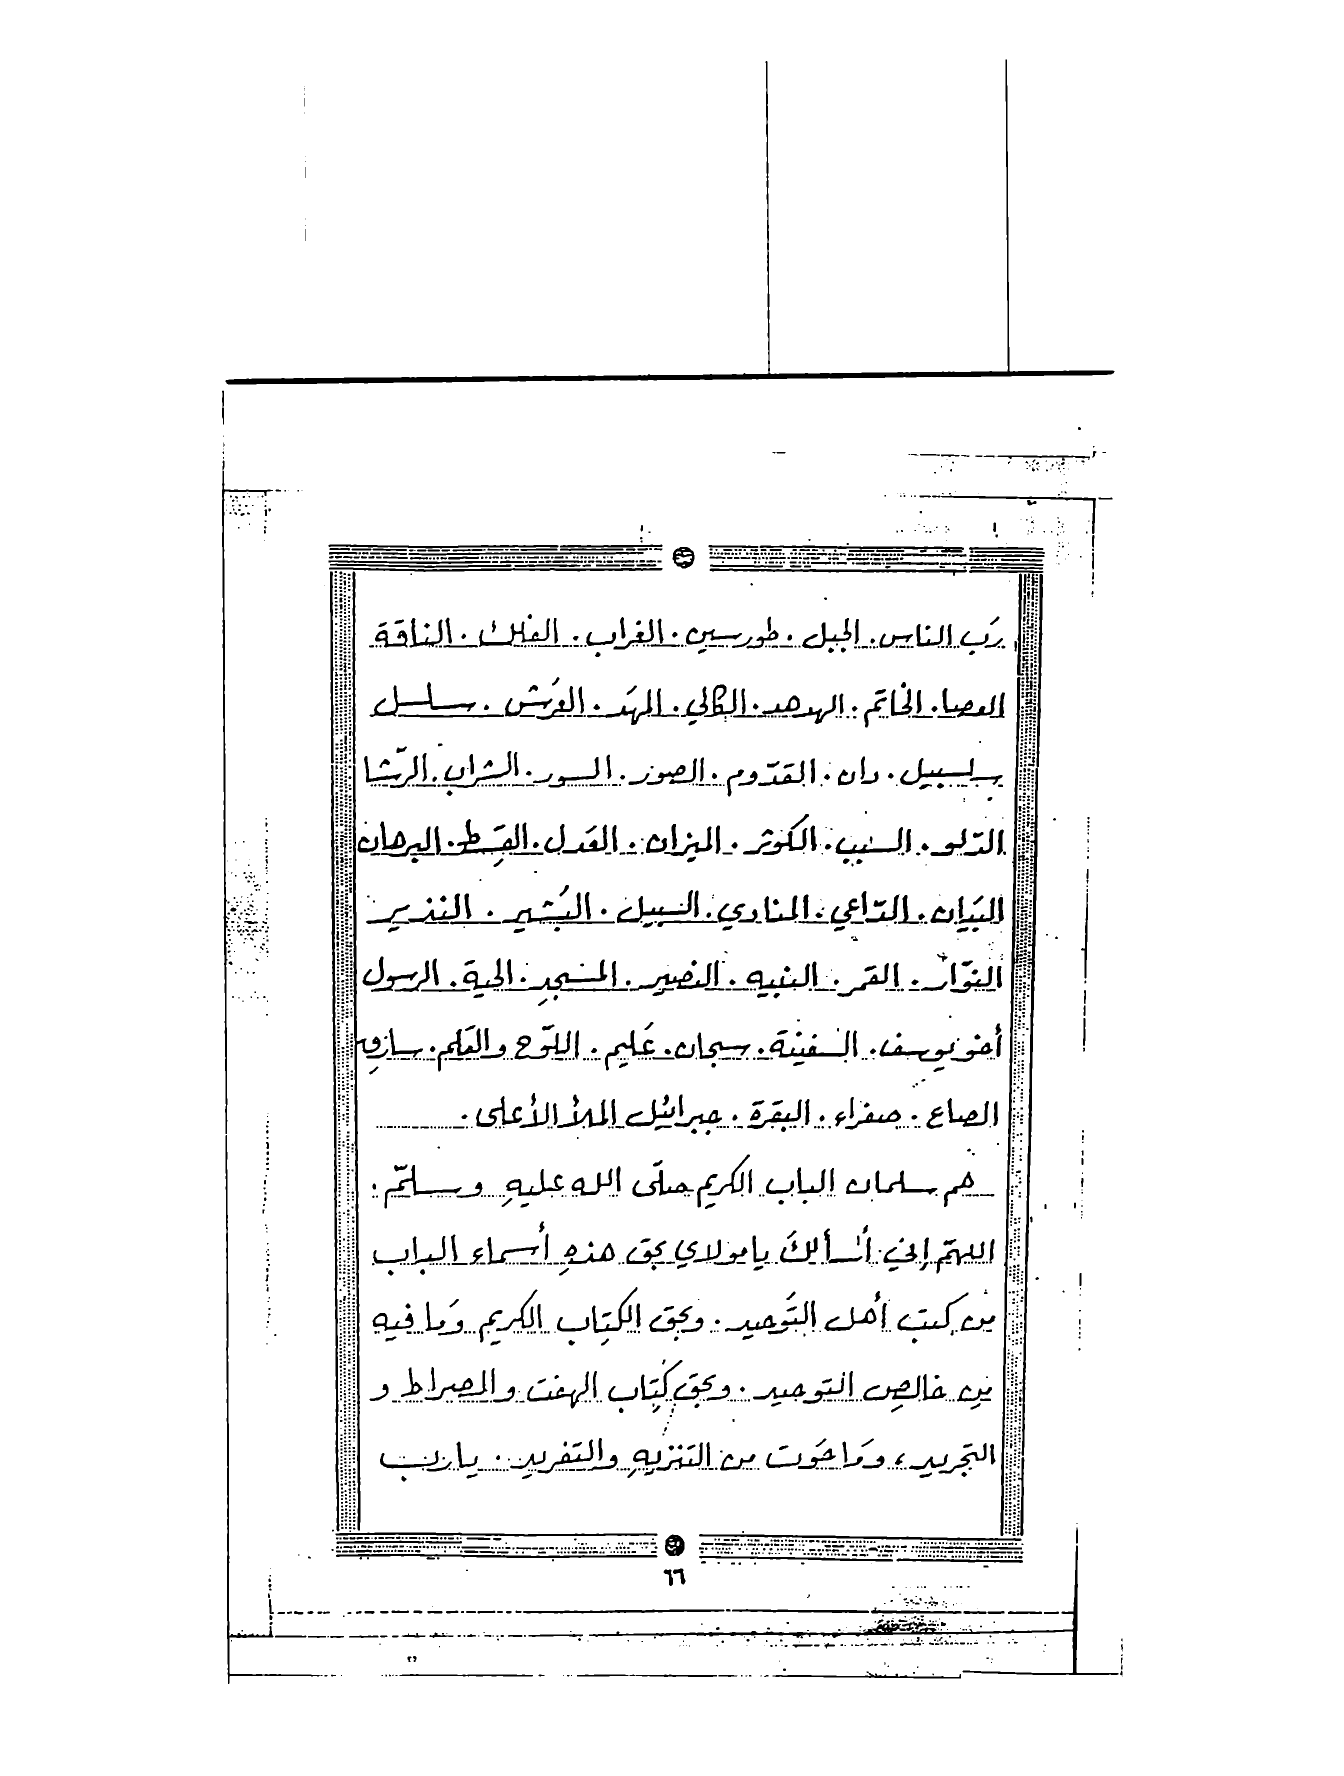 رَب الناس. الجبل. طور سين. الغراب. الفلك. الناقة
العصا. الخاتم. الهدهد. الكالي. المهَد. العَرش. سلسل
سلسبيل. دان. القدّوم. الصور. السور. الشراب. الرّشا
الدّلو. السبب. الكَوثر. الميزان. العَدل. القِسط. البرهان
البَيان. الدّاعي. المنادي. السبيل. البَشير. النذير
النوّار. القمر. النبيه. النصير. المسجدِ. الحية. الرسول
أخو يوسف. السفينة. سبحان. عَليم. اللَوح والقلم. سارق
الصاع. صفراء. البقرة. جبرائيل الملأ الأعلى.
هم سلمان الباب الكريم صلّى الله عليهِ وسلّم.
اللهمّ إني أسألكَ يا مولاي بحق هذهِ أسماء الباب
من كتب أهل التَوحيد. وبحق الكِتاب الكريم وَما فيه
مِن خالصِ التوحيد. وبحق كِتاب الهفت والصراط و
التجريد، وَما حَوت من التَنزيهِ والتَفريد. يا رب
٦٦